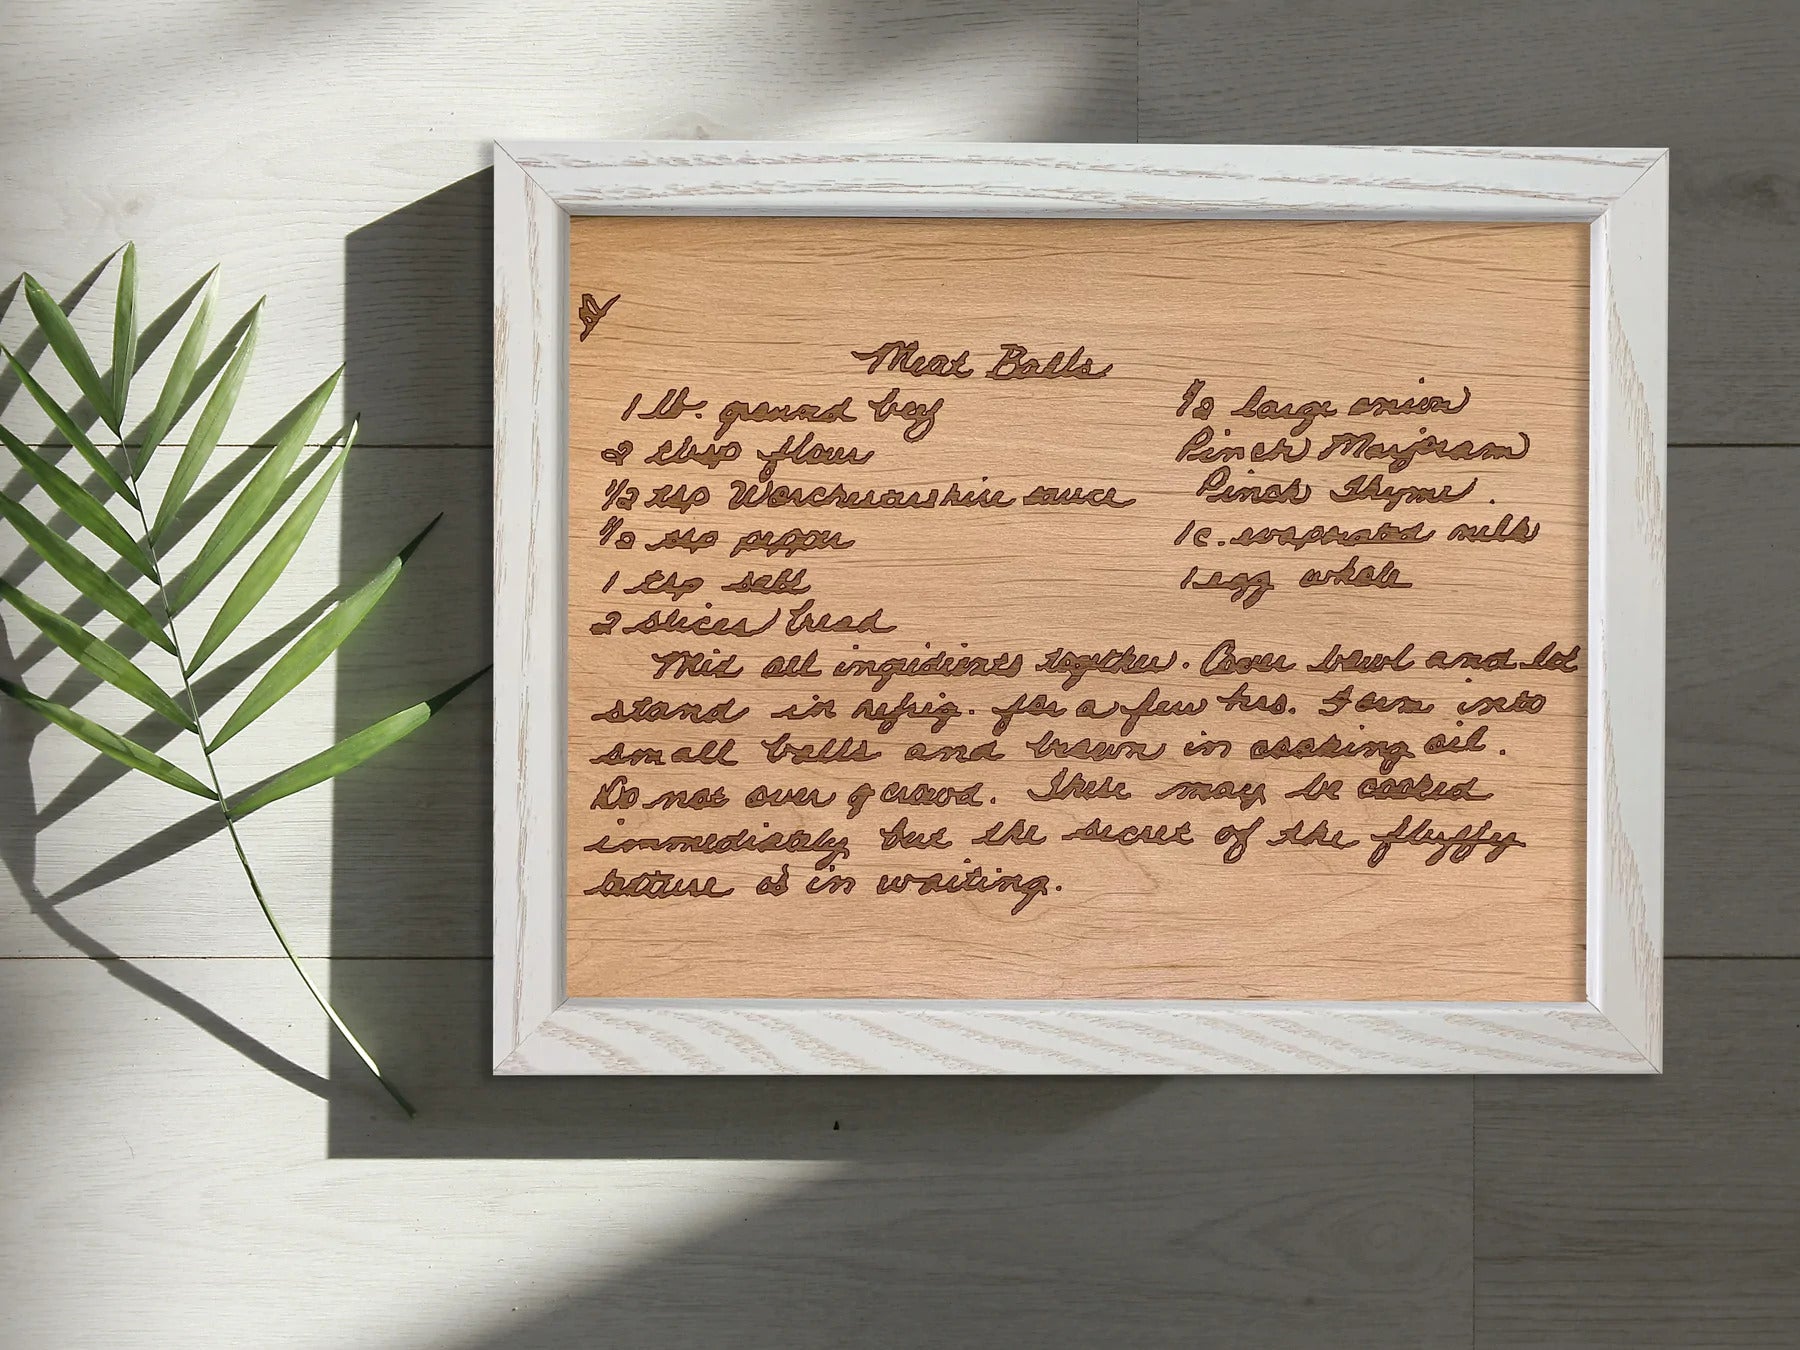 Meat Balls
1 lb. ground beef
2 tbsp flour
1/2 tsp Worchestershire sauce
1/2 tsp pepper
1 tsp salt
2 slices bread
1/2 large onion
Pinch Marjoram
Pinch Thyme.
1 c. evaporated milk
1 egg whole
Mix all ingridients together. Cover bowl and let
stand in refrig. for a few hrs. Form into
small balls and brown in cooking oil.
Do not over crowd. These may be cooked
immediately but the secret of the fluffy
texture is in waiting.